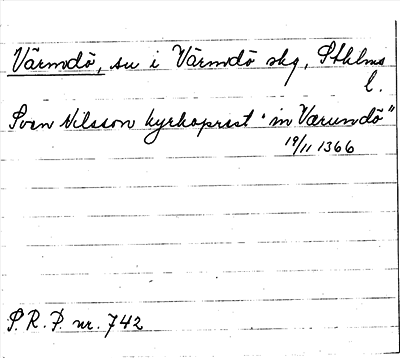 Värmdö, sn i Värmdö skg, Sthlms
l.
Sven Nilsson kyrkoprest "in Værundö"
19/11 1366
S. R. P. nr. 742